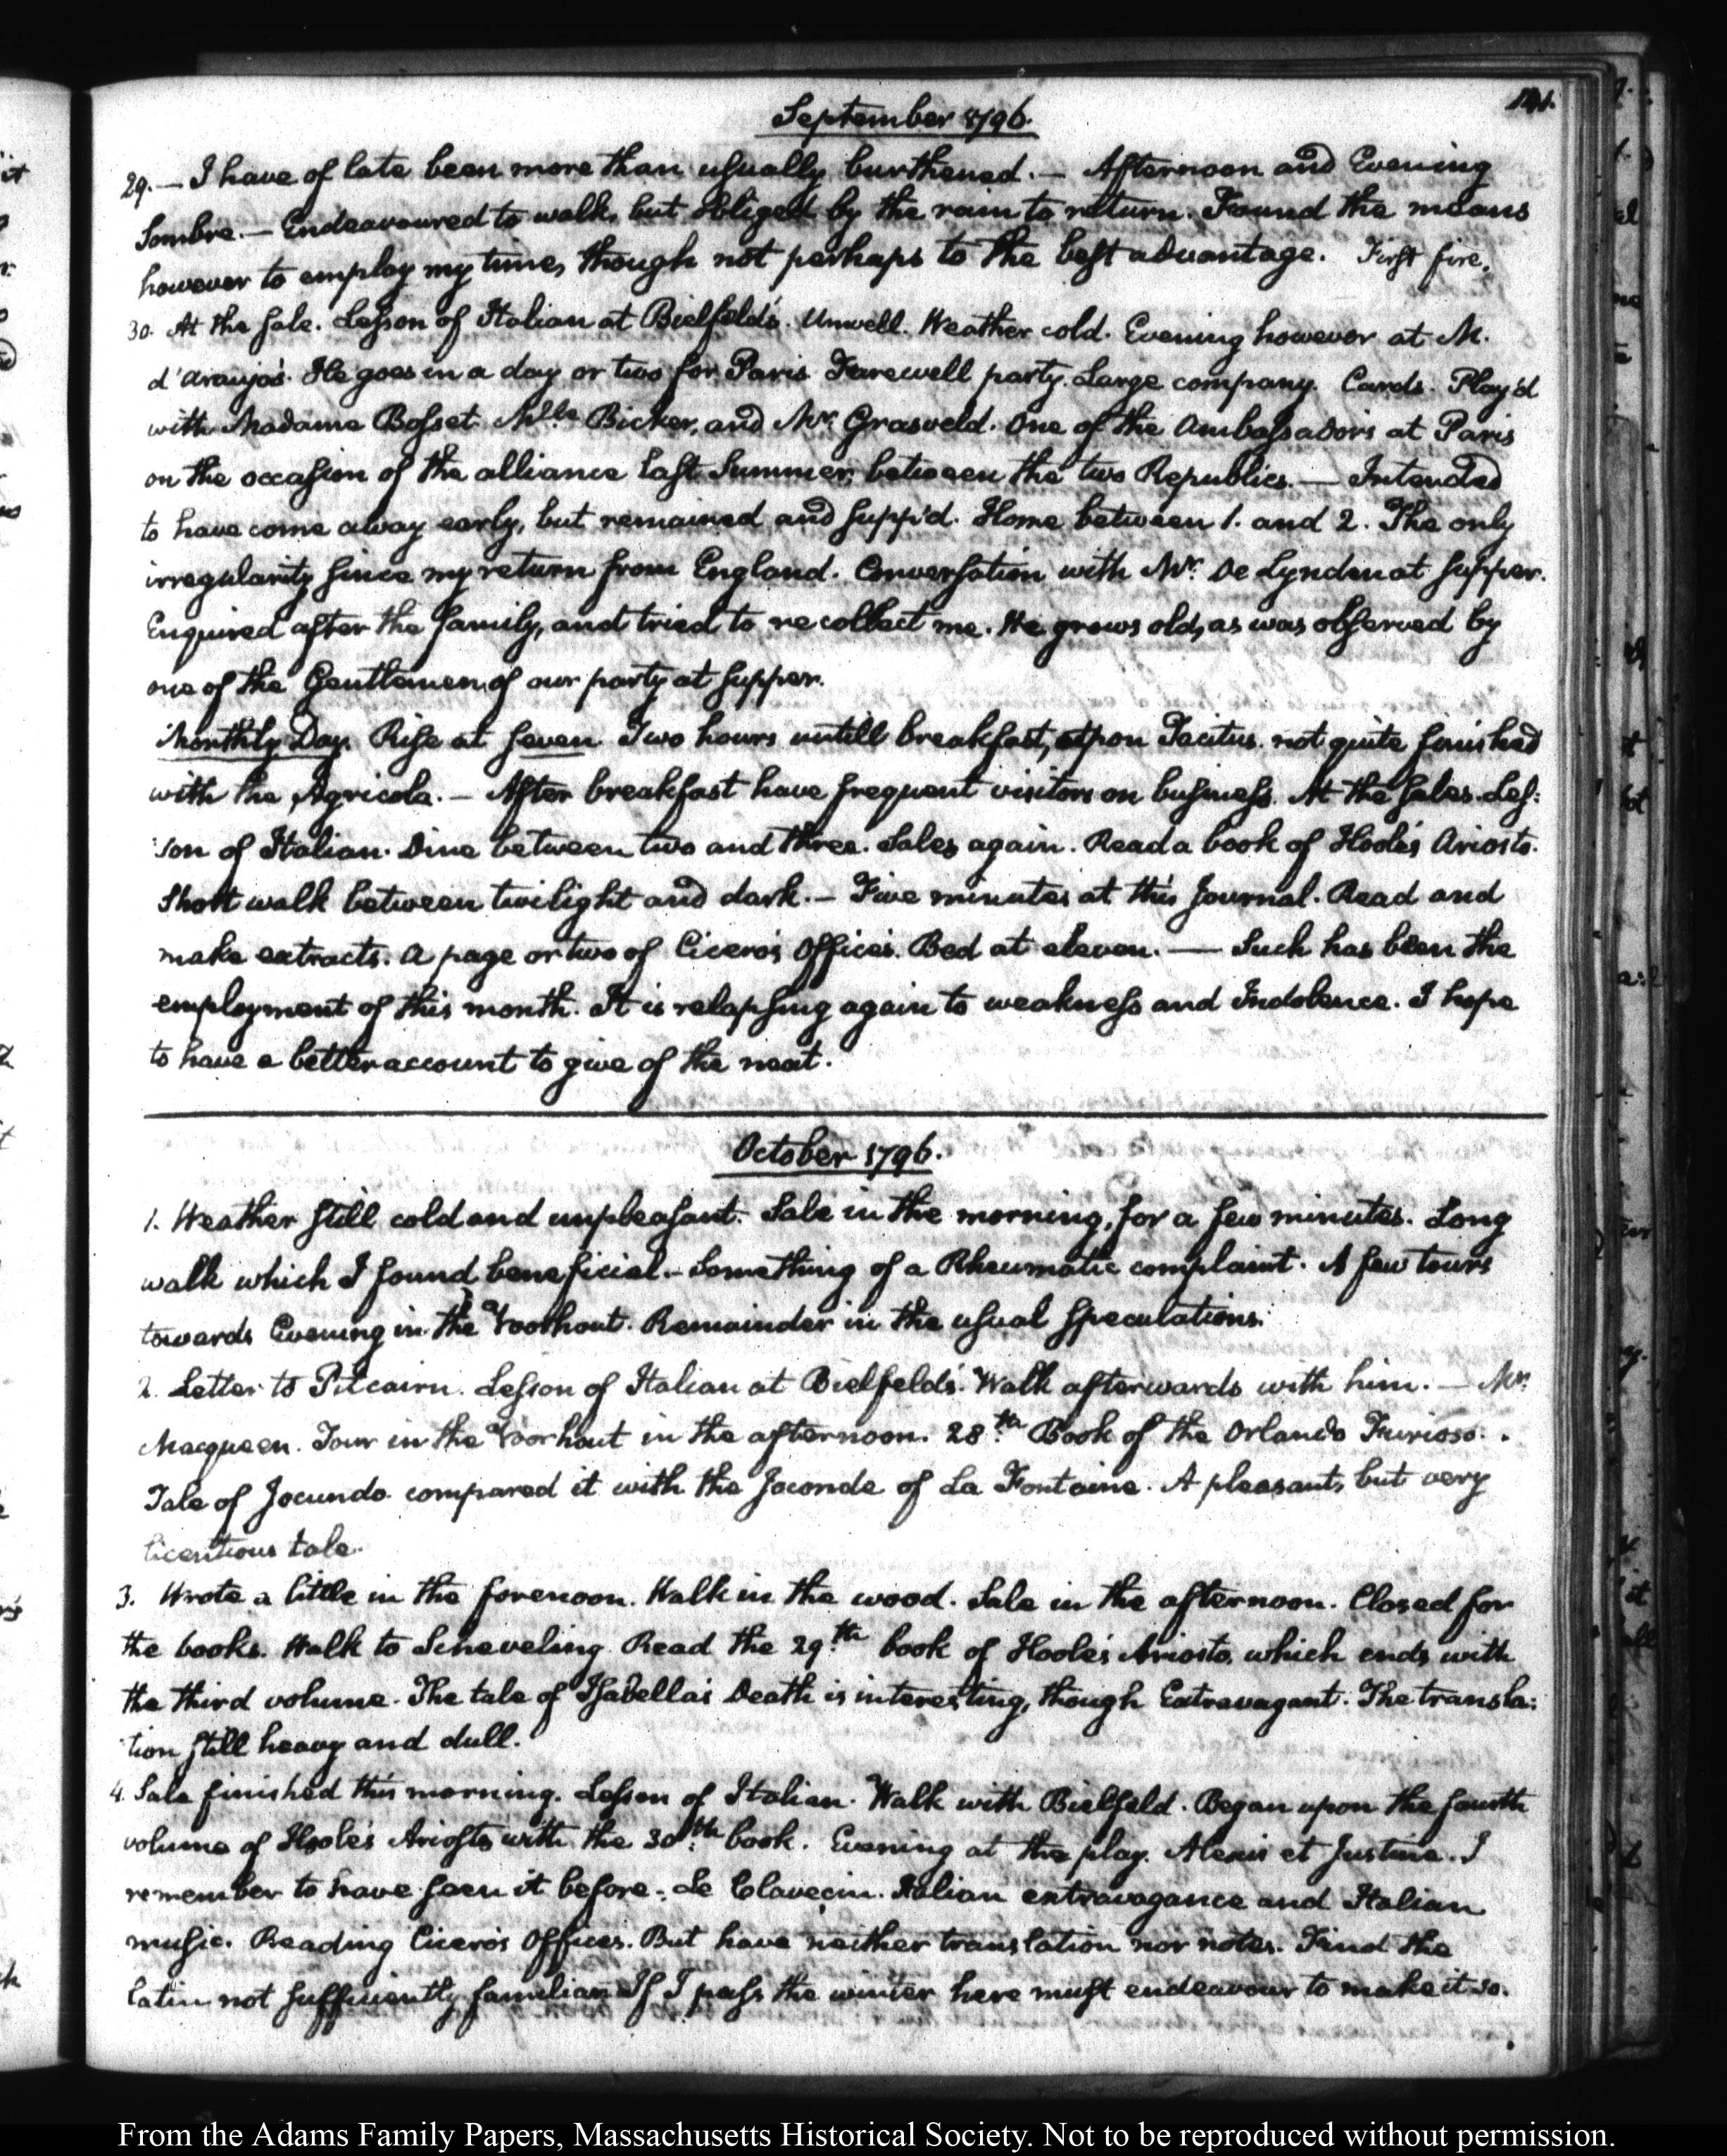 141.
September 1796.
29. — I have of late been more than usually burthened. — Afternoon and Evening
Sombre. — Endeavoured to walk, but obliged by the rain to return. Found the means
however to employ my time, though not perhaps to the best advantage. First fire.
30. At the sale. Lesson of Italian at Bielfeld's. Unwell. Weather cold. Evening however at M.
d'Araujo's. He goes in a day or two for Paris. Farewell party. Large company. Cards. Play'd
with Madame Bosset. Mlle. Bicker, and Mr. Grasveld. One of the Ambassadors at Paris
on the occasion of the alliance last Summer, between the two Republics. — Intended
to have come away early, but remained and supp'd. Home between 1. and 2. The only
irregularity since my return from England. Conversation with Mr. De Lynden at supper.
Enquired after the family, and tried to recollect me. He grows old, as was observed by
one of the Gentlemen of our party at supper.
Monthly Day. Rise at seven. Two hours untill breakfast, upon Tacitus. not quite finished
with the Agricola. — After breakfast have frequent visitors on business. At the sales. Les:
:son of Italian. Dine between two and three. Sales again. Read a book of Hoole's Ariosto.
Short walk between twilight and dark. — Five minutes at this Journal. Read and
make extracts. A page or two of Cicero's Offices. Bed at eleven. — Such has been the
employment of this month. It is relapsing again to weakness and Indolence. I hope
to have a better account to give of the next.
October 1796.
1. Weather still cold and unpleasant. Sale in the morning, for a few minutes. Long
walk which I found beneficial. — Something of a Rheumatic complaint. A few tours
towards Evening in the Voorhout. Remainder in the usual speculations.
2. Letter to Pitcairn. Lesson of Italian at Bielfeld's. Walk afterwards with him. — Mr.
Macqueen. Tour in the Voorhout in the afternoon. 28.th Book of the Orlando Furioso.
Tale of Jocundo. compared it with the Joconde of La Fontaine. A pleasant, but very
licentious tale.
3. Wrote a little in the forenoon. Walk in the wood. Sale in the afternoon. Closed for
the books. Walk to Scheveling. Read the 29.th book of Hoole's Ariosto, which ends with
the third volume. The tale of Isabella's Death is interesting, though Extravagant. The transla:
:tion still heavy and dull.
4. Sale finished this morning. Lesson of Italian. Walk with Bielfeld. Began upon the fourth
volume of Hoole's Ariosto, with the 30.th book. Evening at the play. Alexis et Justine. I
remember to have seen it before. Le Clavecin. Italian extravagance and Italian
music. Reading Cicero's Offices. But have neither translation nor notes. Find the
latin not sufficiently familiar. If I pass the winter here must endeavour to make it so.
From the Adams Family Papers, Massachusetts Historical Society. Not to be reproduced without permission.